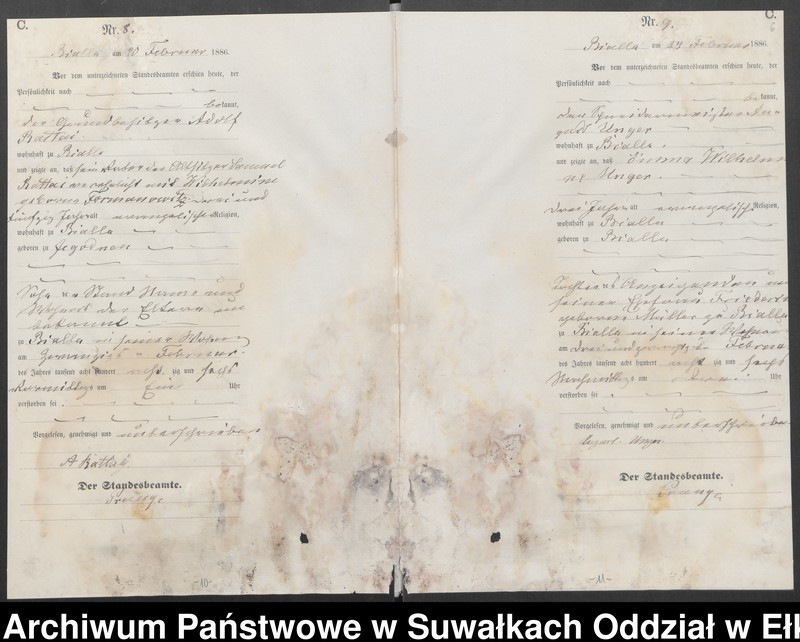 C.
Nr. 8.
Bialla am 20 Februar 1886.
Vor dem unterzeichneten Standesbeamten erschien heute, der
Persönlichkeit nach
bekannt,
der Grundbesitzer Adolf
Rattai
wohnhaft zu Bialla
und zeigte an, daß sein Vater der Altsitzer Samuel
Rattai verehelicht mit Wilhelmine
geborene drei und
fünfzig Jahre alt evangelischer Religion,
wohnhaft zu Bialla
geboren zu Jegodnen
Sohn Stand Name und
Wohnort der Eltern un
bekannt
zu Bialla in seiner Wohnung
am zwanzigsten Februar
des Jahres tausend acht hundert achtzig und sechs
Vormittags um Ein Uhr
verstorben sei.
Vorgelesen, genehmigt und unterschrieben
A Rattai
Der Standesbeamte.
-10-
C.
6
Nr. 9.
Bialla am 24 Februar 1886.
Vor dem unterzeichneten Standesbeamten erschien heute, der
Persönlichkeit nach
bekannt,
der Schneidermeister Au-
gust Unger
wohnhaft zu Bialla.
und zeigte an, daß Emma Wilhelmi
ne Unger.
drei Jahre alt evangelischer Religion,
wohnhaft zu Bialla
geboren zu Bialla
Tochter des Anzeigenden und
seiner Ehefrau Friederi
geborene Müller zu Bialla
zu Bialla in seiner Wohnung
am drei und zwanzigsten Februar
des Jahres tausend acht hundert achtzig und sechs
Nachmittags um Uhr
verstorben sei.
Vorgelesen, genehmigt und unterschrieben
August Unger.
Der Standesbeamte.
-11-
Archiwum Państwowe w Suwałkach Oddział w Eł